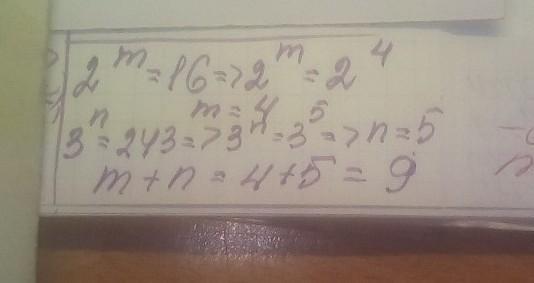 2^m = 16 => 2^m = 2^4
m = 4
3^n = 243 => 3^n = 3^5 => n = 5
m + n = 4 + 5 = 9